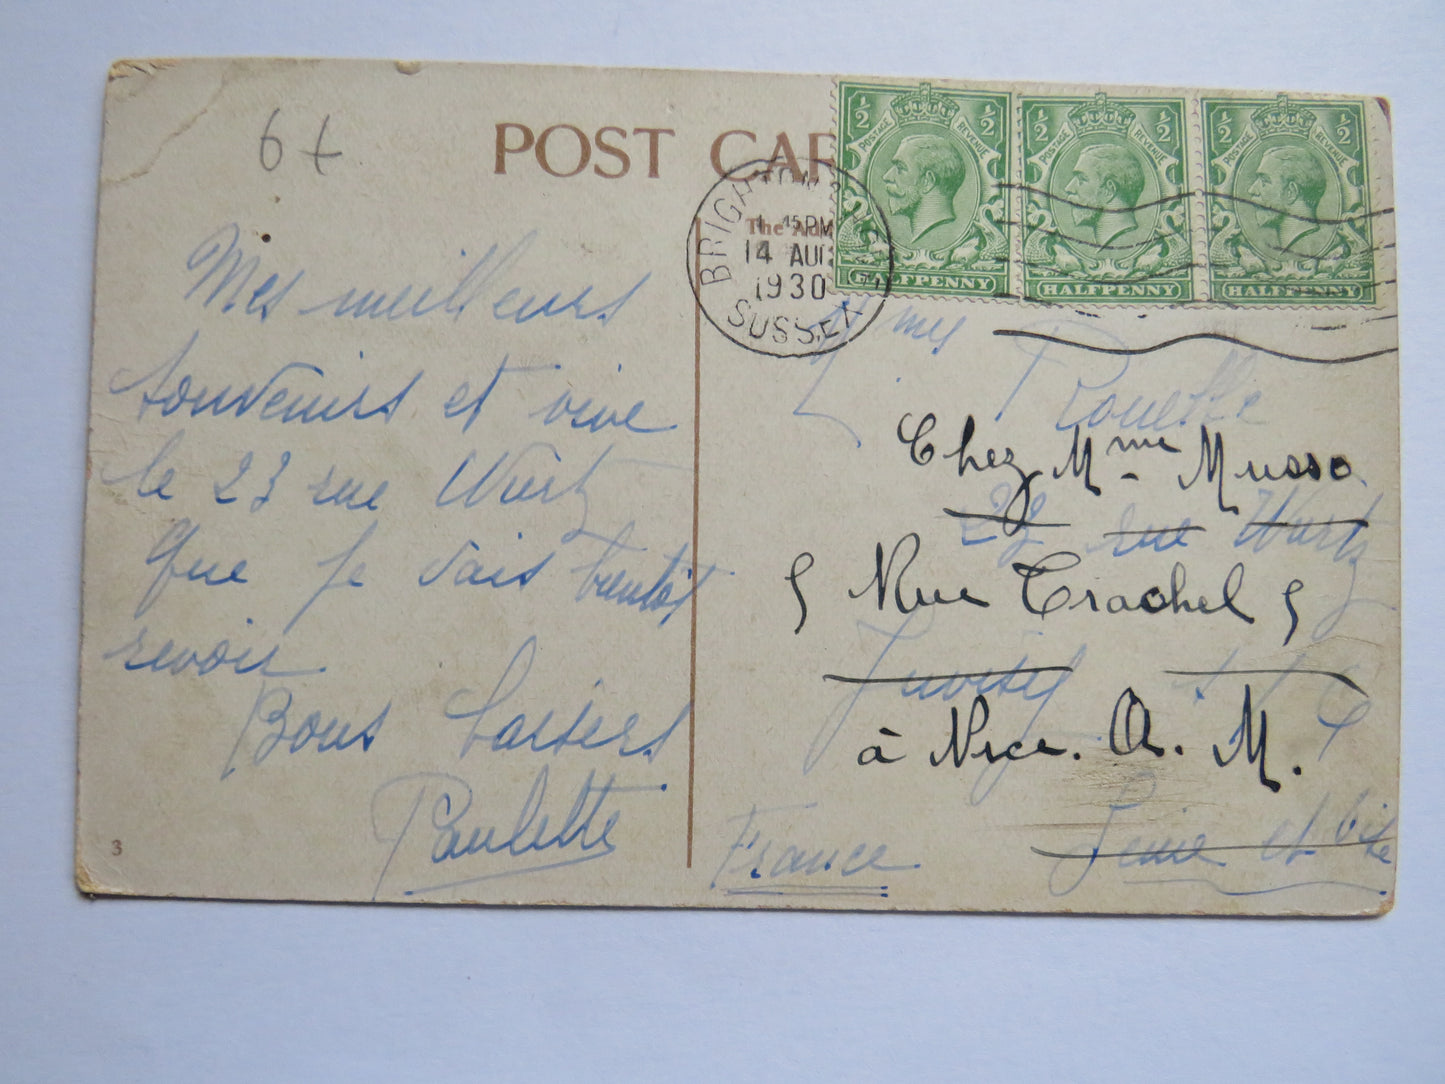 6
POST CAR
The Ad
BRIGHTON &
1 45PM
14 AUG
1930
SUSSEX
½ ½ ½ ½ ½ ½
POSTAGE REVENUE POSTAGE REVENUE POSTAGE REVENUE
HALFPENNY HALFPENNY HALFPENNY
Mes meilleurs
souvenirs et vive
le 23 rue Wurtz
que je vais bientôt
revoir.
Bons baisers
Paulette
3
Mmes Rouette
Chez Mme Musso
23 rue Wurtz
Rue Trachel
Juvisy s/
à Nice. A. M.
Seine et Oise
France